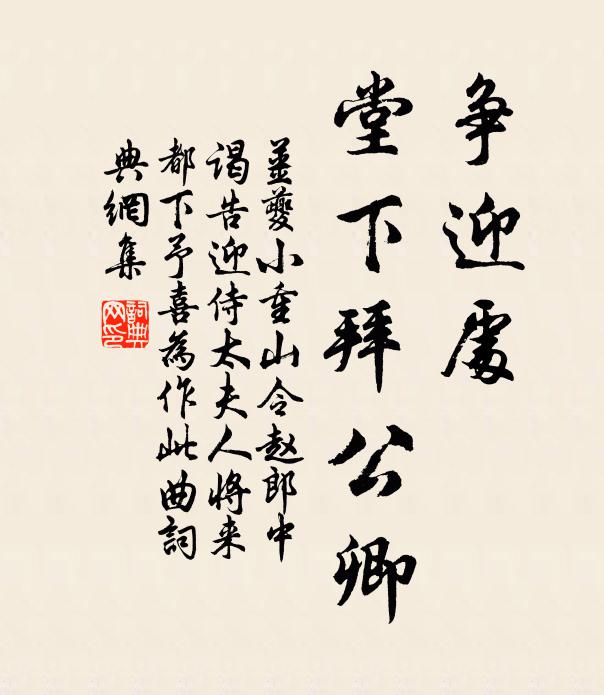 争迎處
堂下拜公卿
姜夔小重山令赵郎中
谒告迎侍太夫人将来
都下予喜為作此曲詞
典網集
詞典网印